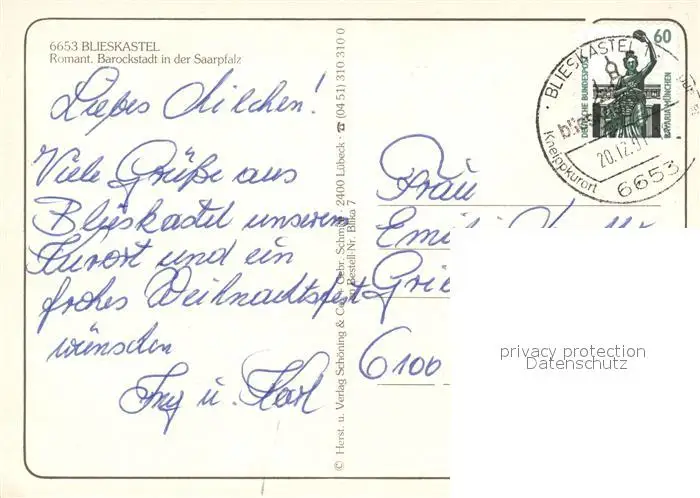 6653 BLIESKASTEL
Romant. Barockstadt in der Saarpfalz
Liebes Milchen!
Viele Grüße aus
Blieskastel unserem
Kurort und ein
frohes Weihnachtsfest
wünschen
u. Karl
© Herst. u. Verlag Schöning & Co + Gebr. Schmidt · 2400 Lübeck · ☎ (04 51) 310 310 0
Bestell-Nr. Blika 7
Frau
6100
60
DEUTSCHE BUNDESPOST
BAVARIA MÜNCHEN
BLIESKASTEL 1
20.12.91
6653
Kneippkurort
privacy protection
Datenschutz